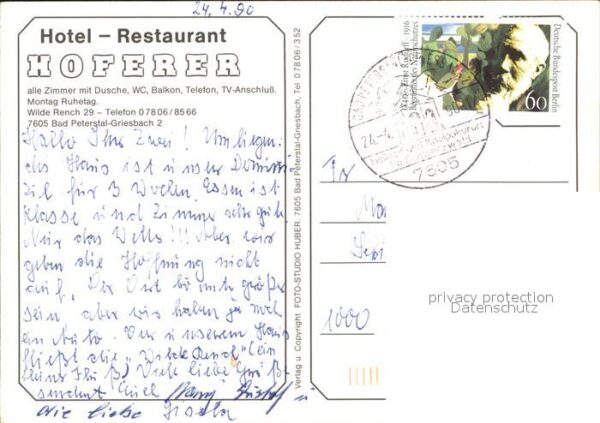 24.4.90
Hotel – Restaurant
HOFERER
alle Zimmer mit Dusche, WC, Balkon, Telefon, TV-Anschluß.
Montag Ruhetag.
Wilde Rench 29 – Telefon 0 78 06 / 85 66
7605 Bad Peterstal-Griesbach 2
Hallo Ihr Zwei! Umliegen-
des Haus ist unser Domi
zil für 3 Wochen. Essen ist
Klasse und Zimmer sehr gut.
Nur das Wetter!!! Aber wir
geben die Hoffnung nicht
auf. Der Ort könnte größer
sein aber wir haben ja noch
ein Auto. Vor unserem Haus
fließt die "Wilde Rench" (ein
kleiner Fluß) Viele liebe Grüße
sendet Euch Gustav
die liebe Gisela
Verlag u. Copyright FOTO-STUDIO HUBER, 7605 Bad Peterstal-Griesbach, Tel. 0 78 06 / 3 52
1840 Ernst Rudorff 1916
Deutsche Bundespost Berlin
60
24.-4.
7605
1000
privacy protection
Datenschutz